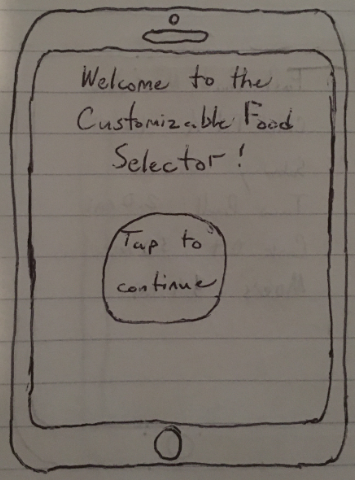 Welcome to the
Customizable Food
Selector!
Tap to
continue